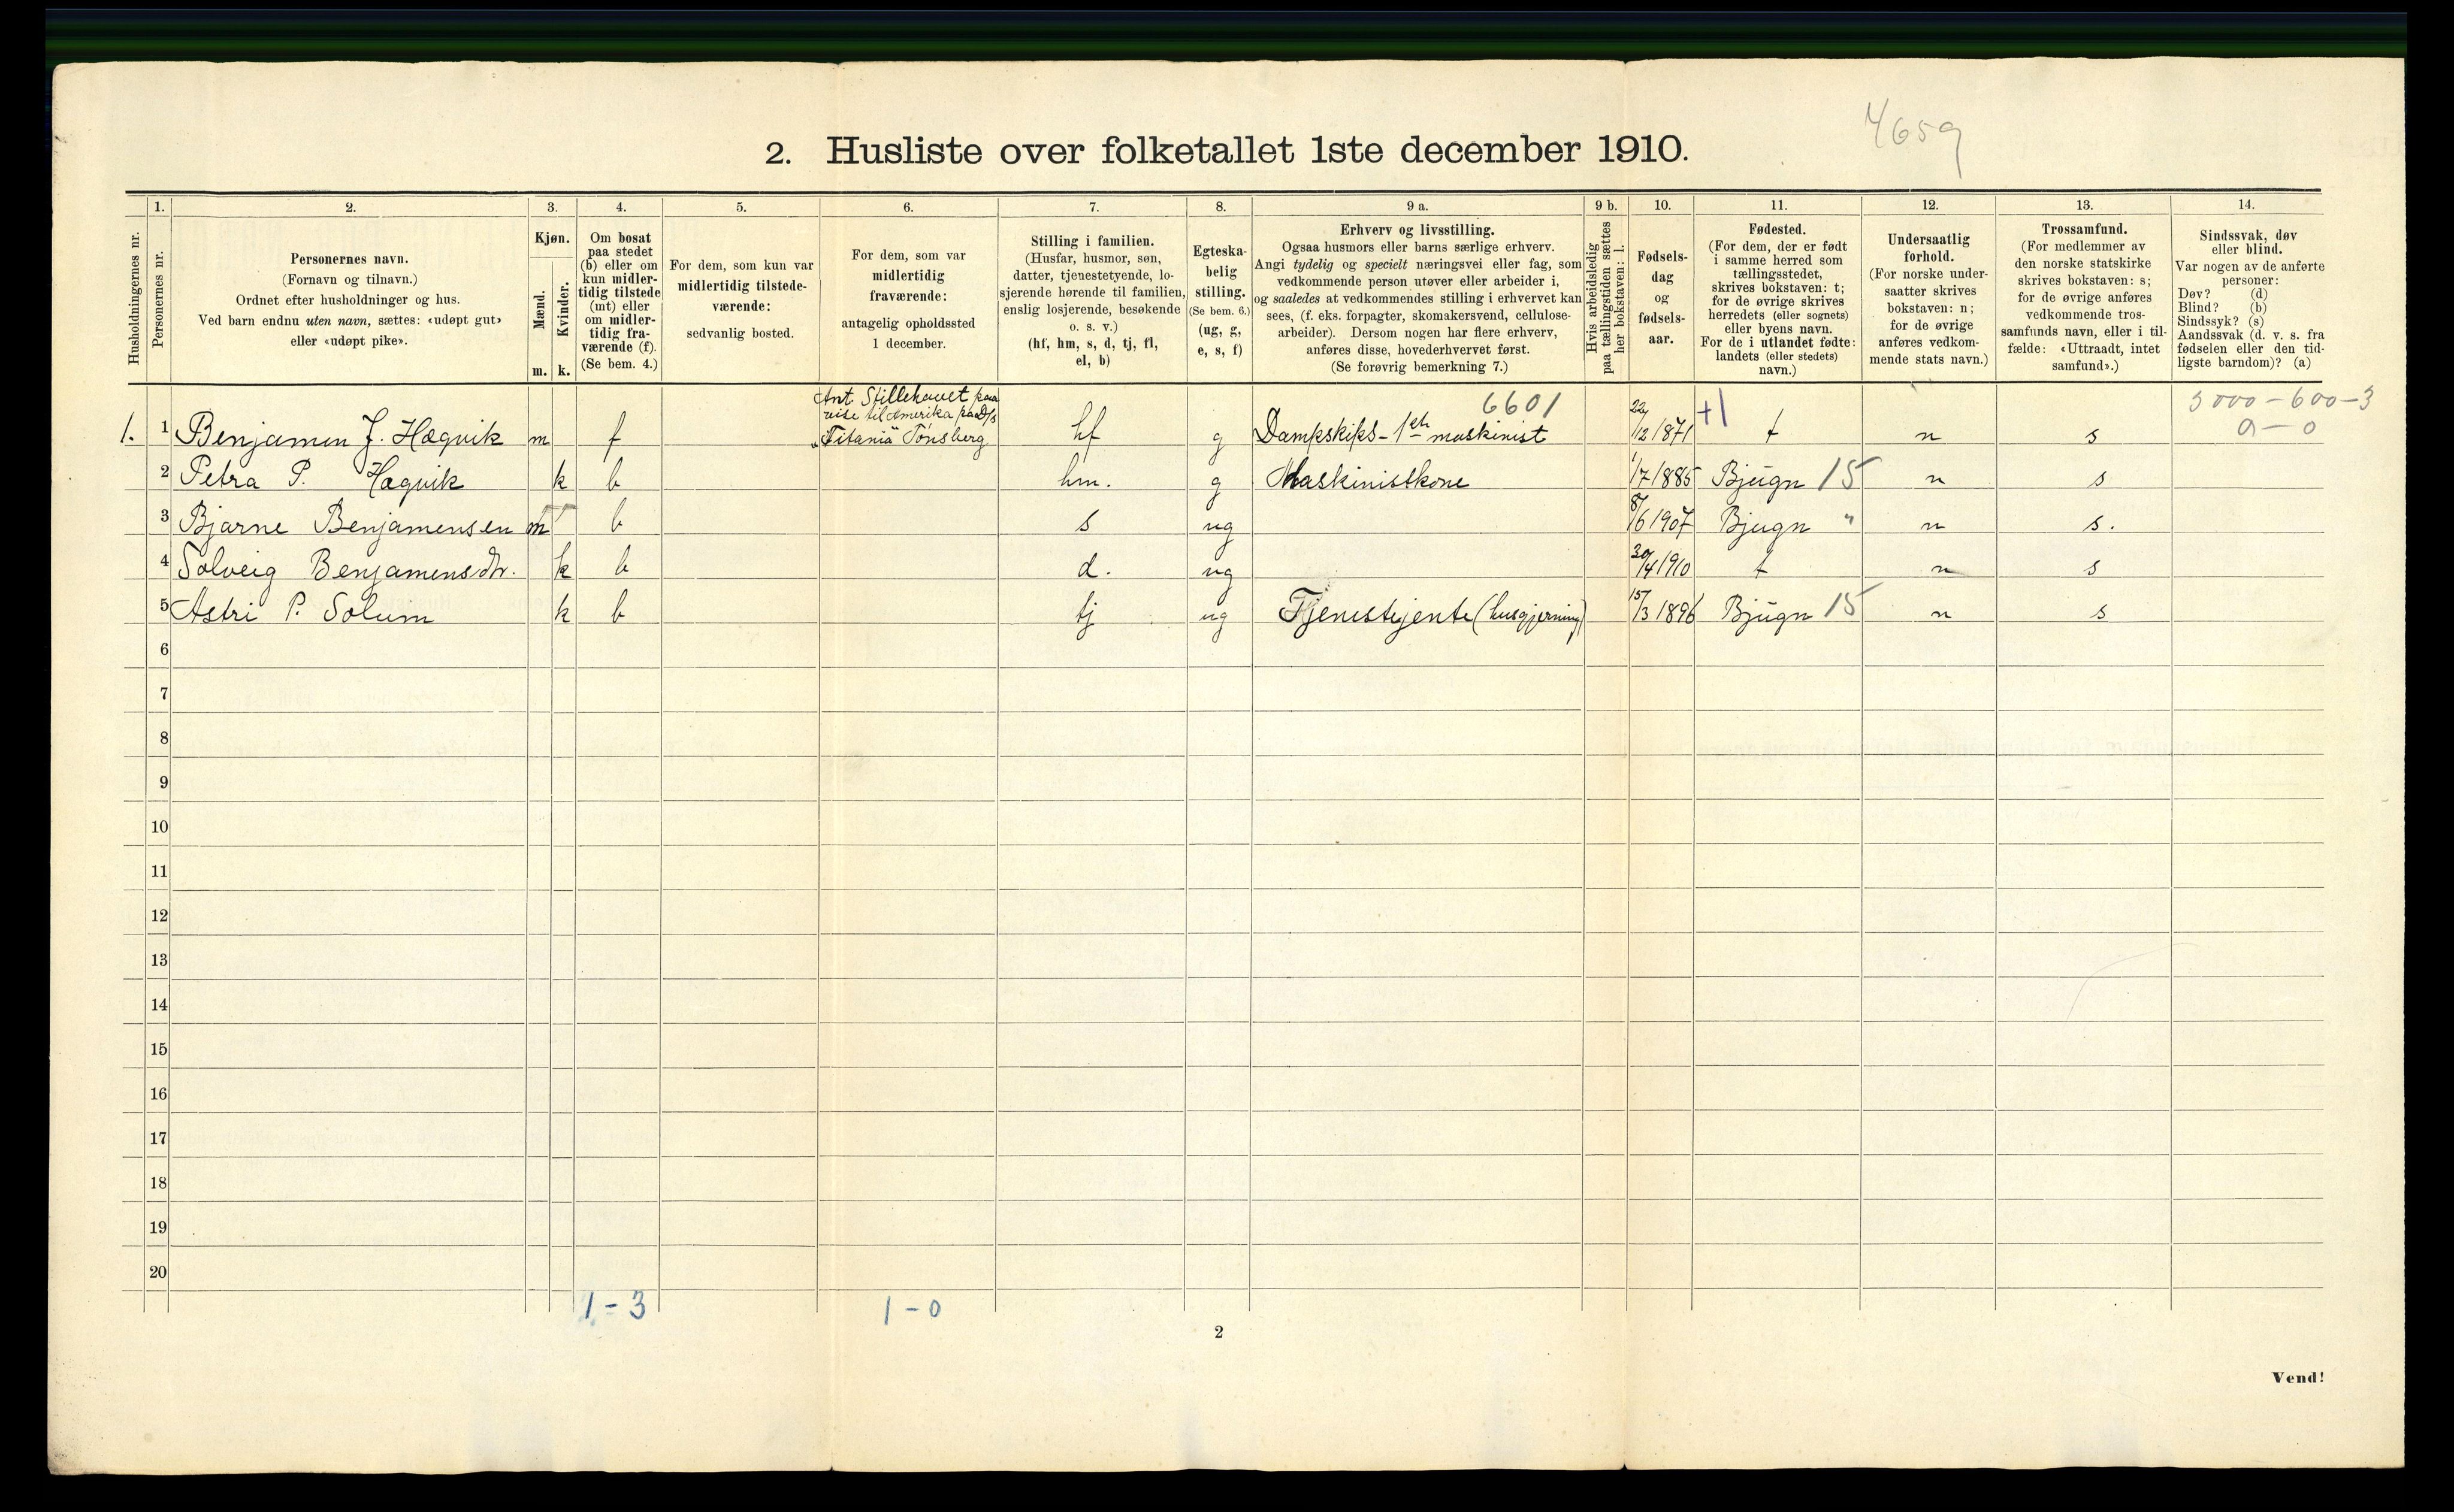 4659
2. Husliste over folketallet 1ste december 1910.
Husholdningernes nr.
1.
Personernes nr.
2.
Personernes navn.
(Fornavn og tilnavn.)
Ordnet efter husholdninger og hus.
Ved barn endnu uten navn, sættes: «udøpt gut»
eller «udøpt pike».
3.
Kjøn.
Mænd.
Kvinder.
m. k.
4.
Om bosat
paa stedet
(b) eller om
kun midler-
tidig tilstede
(mt) eller
om midler-
tidig fra-
værende (f).
(Se bem. 4.)
5.
For dem, som kun var
midlertidig tilstede-
værende:
sedvanlig bosted.
6.
For dem, som var
midlertidig
fraværende:
antagelig opholdssted
1 december.
7.
Stilling i familien.
(Husfar, husmor, søn,
datter, tjenestetyende, lo-
sjerende hørende til familien,
enslig losjerende, besøkende
o. s. v.)
(hf, hm, s, d, tj, fl,
el, b)
8.
Egteska-
belig
stilling.
(Se bem. 6.)
(ug, g,
e, s, f)
9 a.
Erhverv og livsstilling.
Ogsaa husmors eller barns særlige erhverv.
Angi tydelig og specielt næringsvei eller fag, som
vedkommende person utøver eller arbeider i,
og saaledes at vedkommendes stilling i erhvervet kan
sees, (f. eks. forpagter, skomakersvend, cellulose-
arbeider). Dersom nogen har flere erhverv,
anføres disse, hovederhvervet først.
(Se forøvrig bemerkning 7.)
9 b.
Hvis arbeidsledig
paa tællingstiden sættes
her bokstaven: l.
10.
Fødsels-
dag
og
fødsels-
aar.
11.
Fødested.
(For dem, der er født
i samme herred som
tællingsstedet,
skrives bokstaven: t;
for de øvrige skrives
herredets (eller sognets)
eller byens navn.
For de i utlandet fødte:
landets (eller stedets)
navn.)
12.
Undersaatlig
forhold.
(For norske under-
saatter skrives
bokstaven: n;
for de øvrige
anføres vedkom-
mende stats navn.)
13.
Trossamfund.
(For medlemmer av
den norske statskirke
skrives bokstaven: s;
for de øvrige anføres
vedkommende tros-
samfunds navn, eller i til-
fælde: «Uttraadt, intet
samfund».)
14.
Sindssvak, døv
eller blind.
Var nogen av de anførte
personer:
Døv? (d)
Blind? (b)
Sindssyk? (s)
Aandssvak (d. v. s. fra
fødselen eller den tid-
ligste barndom)? (a)
Ant. Stillehavet paa
reise til Amerika paa D/s
"Titania" Tønsberg
6601
+1
3000-600-3
a-0
1. 1 Benjamen J. Hægvik m f hf g Dampskips-1ste maskinist 22/12 1871 t n s
2 Petra P. Hægvik k b hm. g Maskinistkone 1/7 1885 Bjugn 15 n s
3 Bjarne Benjamensen m b s ug 8/6 1907 Bjugn " n s.
4 Solveig Benjamensdtr. k b d. ug 30/4 1910 t n s
5 Astri P. Solum k b tj ug Tjenestejente (husgjerning) 15/3 1896 Bjugn 15 n s
6
7
8
9
10
11
12
13
14
15
16
17
18
19
20
1-3
1-0
2
Vend!